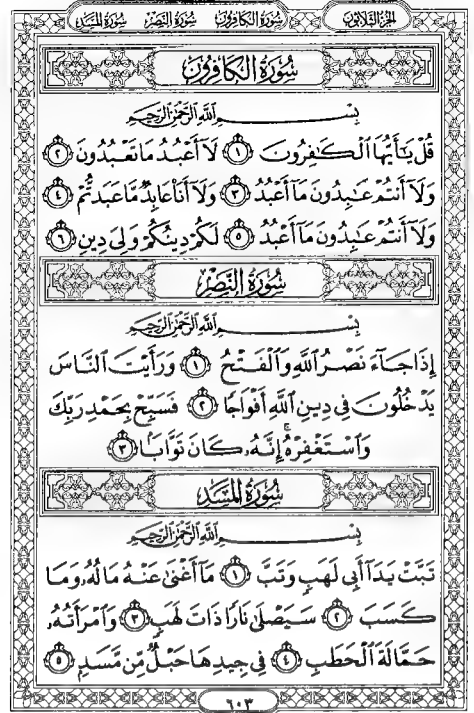 الجزء الثلاثون
سورة الكافرون سورة النصر سورة المسد
سُورَةُ الكَافِرُونَ
بِسْمِ اللَّهِ الرَّحْمَٰنِ الرَّحِيمِ
قُلْ يَٰٓأَيُّهَا ٱلْكَٰفِرُونَ ١ لَآ أَعْبُدُ مَا تَعْبُدُونَ ٢
وَلَآ أَنتُمْ عَٰبِدُونَ مَآ أَعْبُدُ ٣ وَلَآ أَنَا۠ عَابِدٌ مَّا عَبَدتُّمْ ٤
وَلَآ أَنتُمْ عَٰبِدُونَ مَآ أَعْبُدُ ٥ لَكُمْ دِينُكُمْ وَلِىَ دِينِ ٦
سُورَةُ النَّصْرِ
بِسْمِ اللَّهِ الرَّحْمَٰنِ الرَّحِيمِ
إِذَا جَآءَ نَصْرُ ٱللَّهِ وَٱلْفَتْحُ ١ وَرَأَيْتَ ٱلنَّاسَ
يَدْخُلُونَ فِى دِينِ ٱللَّهِ أَفْوَاجًا ٢ فَسَبِّحْ بِحَمْدِ رَبِّكَ
وَٱسْتَغْفِرْهُ ۚ إِنَّهُۥ كَانَ تَوَّابًۢا ٣
سُورَةُ المَسَدِ
بِسْمِ اللَّهِ الرَّحْمَٰنِ الرَّحِيمِ
تَبَّتْ يَدَآ أَبِى لَهَبٍ وَتَبَّ ١ مَآ أَغْنَىٰ عَنْهُ مَالُهُۥ وَمَا
كَسَبَ ٢ سَيَصْلَىٰ نَارًا ذَاتَ لَهَبٍ ٣ وَٱمْرَأَتُهُۥ
حَمَّالَةَ ٱلْحَطَبِ ٤ فِى جِيدِهَا حَبْلٌ مِّن مَّسَدٍۭ ٥
٦٠٣